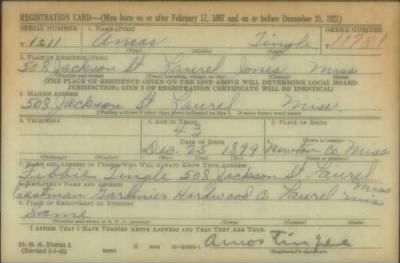 REGISTRATION CARD—(Men born on or after February 17, 1897 and on or before December 31, 1921)
SERIAL NUMBER 1. NAME (Print) ORDER NUMBER
1211 Amos Tingle 11981
2. PLACE OF RESIDENCE (Print)
508 Jackson St Laurel Jones Miss
[THE PLACE OF RESIDENCE GIVEN ON THE LINE ABOVE WILL DETERMINE LOCAL BOARD
JURISDICTION; LINE 2 OF REGISTRATION CERTIFICATE WILL BE IDENTICAL]
3. MAILING ADDRESS
508 Jackson St Laurel Miss
4. TELEPHONE 5. AGE IN YEARS 6. PLACE OF BIRTH
43
DATE OF BIRTH
Dec. 25 1899
Newton Co Miss
7. NAME AND ADDRESS OF PERSON WHO WILL ALWAYS KNOW YOUR ADDRESS
Tibbie Tingle 508 Jackson St Laurel Miss
8. EMPLOYER'S NAME AND ADDRESS
Eastman Gardinier Hardwood Co Laurel Miss
9. PLACE OF EMPLOYMENT OR BUSINESS
Same
I AFFIRM THAT I HAVE VERIFIED ABOVE ANSWERS AND THAT THEY ARE TRUE.
D. S. S. Form 1
Amos Tingle